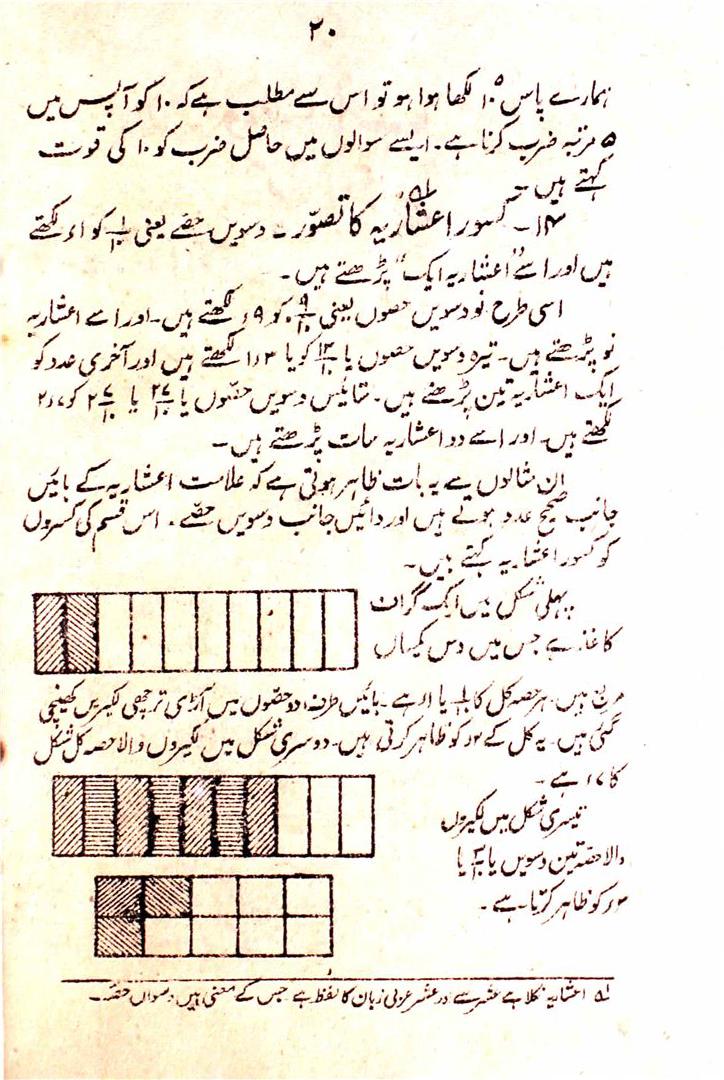 ۲۰
ہمارے پاس ۱۰<sup>۵</sup> لکھا ہوا ہو تو اس سے مطلب ہے کہ ۱۰ کو آپس میں
۵ مرتبہ ضرب کرنا ہے۔ ایسے سوالوں میں حاصل ضرب کو ۱۰ کی قوت
کہتے ہیں۔
۱۴۔ کسور اعشاریہ کا تصوّر۔ دسویں حصے یعنی ۱/۱۰ کو ۱ء لکھتے
ہیں اور اسے "اعشاریہ ایک" پڑھتے ہیں۔
اسی طرح نو دسویں حصوں یعنی ۹/۱۰ کو ۹ء لکھتے ہیں۔ اور اسے اعشاریہ
نو پڑھتے ہیں۔ تیرہ دسویں حصوں یا ۱۳/۱۰ کو یا ۱ء۳ لکھتے ہیں اور آخری عدد کو
ایک اعشاریہ تین پڑھتے ہیں۔ ستائیس دسویں حصّوں یا ۲۷/۱۰ یا ۲ ۷/۱۰ کو ۲ء۷
لکھتے ہیں۔ اور اسے دو اعشاریہ سات پڑھتے ہیں۔
ان مثالوں سے یہ بات ظاہر ہوتی ہے کہ علامت اعشاریہ کے بائیں
جانب صحیح عدد ہوتے ہیں اور دائیں جانب دسویں حصے۔ اس قسم کی کسروں
کو کسور اعشاریہ کہتے ہیں۔
پہلی شکل میں ایک گراف
کاغذ ہے جس میں دس یکساں
مربع ہیں۔ ہر حصہ کل کا ۱/۱۰ یا ۱ء ہے۔ بائیں طرف دو حصّوں میں آڑی ترچھی لکیریں کھینچی
گئی ہیں۔ یہ کل کے ۲ء کو ظاہر کرتی ہیں۔ دوسری شکل میں لکیروں والا حصہ کل شکل
کا ۷ء ہے۔
تیسری شکل میں لکیروں
والا حصّہ تین دسویں یا ۳/۱۰ یا
۳ء کو ظاہر کرتا ہے۔
۱ے اعشاریہ نکلا ہے عشر سے اور عشر عربی زبان کا لفظ ہے جس کے معنی ہیں دسواں حصّہ۔